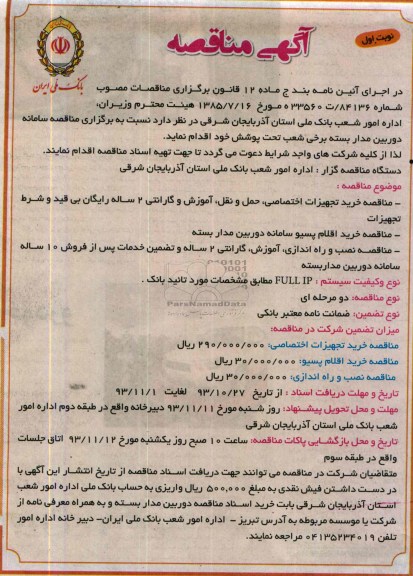 نوبت اول
آگهی مناقصه
بانک ملی ایران
در اجرای آئین نامه بند ج ماده ۱۲ قانون برگزاری مناقصات مصوب
شماره ۸۴۱۳۶/ت ۳۳۵۶۰ه مورخ ۱۳۸۵/۷/۱۶ هیئت محترم وزیران،
اداره امور شعب بانک ملی استان آذربایجان شرقی در نظر دارد نسبت به برگزاری مناقصه سامانه
دوربین مدار بسته برخی شعب تحت پوشش خود اقدام نماید.
لذا از کلیه شرکت های واجد شرایط دعوت می گردد تا جهت تهیه اسناد مناقصه اقدام نمایند.
دستگاه مناقصه گزار : اداره امور شعب بانک ملی استان آذربایجان شرقی
موضوع مناقصه :
– مناقصه خرید تجهیزات اختصاصی، حمل و نقل، آموزش و گارانتی ۲ ساله رایگان بی قید و شرط
تجهیزات
– مناقصه خرید اقلام پسیو سامانه دوربین مدار بسته
– مناقصه نصب و راه اندازی، آموزش، گارانتی ۲ ساله و تضمین خدمات پس از فروش ۱۰ ساله
سامانه دوربین مداربسته
نوع وکیفیت سیستم : FULL IP مطابق مشخصات مورد تائید بانک .
نوع مناقصه: دو مرحله ای
ParsNamadData
نوع تضمین: ضمانت نامه معتبر بانکی
میزان تضمین شرکت در مناقصه:
مناقصه خرید تجهیزات اختصاصی: ۲۹۰/۰۰۰/۰۰۰ ریال
مناقصه خرید اقلام پسیو: ۳۰/۰۰۰/۰۰۰ ریال
مناقصه نصب و راه اندازی: ۳۰/۰۰۰/۰۰۰ ریال
تاریخ و مهلت دریافت اسناد : از تاریخ ۹۳/۱۰/۲۷ لغایت ۹۳/۱۱/۱
مهلت و محل تحویل پیشنهاد: روز شنبه مورخ ۹۳/۱۱/۱۱ دبیرخانه واقع در طبقه دوم اداره امور
شعب بانک ملی استان آذربایجان شرقی
تاریخ و محل بازگشایی پاکات مناقصه: ساعت ۱۰ صبح روز یکشنبه مورخ ۹۳/۱۱/۱۲ اتاق جلسات
واقع در طبقه سوم
متقاضیان شرکت در مناقصه می توانند جهت دریافت اسناد مناقصه از تاریخ انتشار این آگهی با
در دست داشتن فیش نقدی به مبلغ ۵۰۰,۰۰۰ ریال واریزی به حساب بانک ملی اداره امور شعب
استان آذربایجان شرقی بابت خرید اسناد مناقصه دوربین مدار بسته و به همراه معرفی نامه از
شرکت یا موسسه مربوطه به آدرس تبریز – اداره امور شعب بانک ملی ایران– دبیر خانه اداره امور
تلفن ۰۴۱۳۵۲۳۴۰۱۹ مراجعه نمایند.